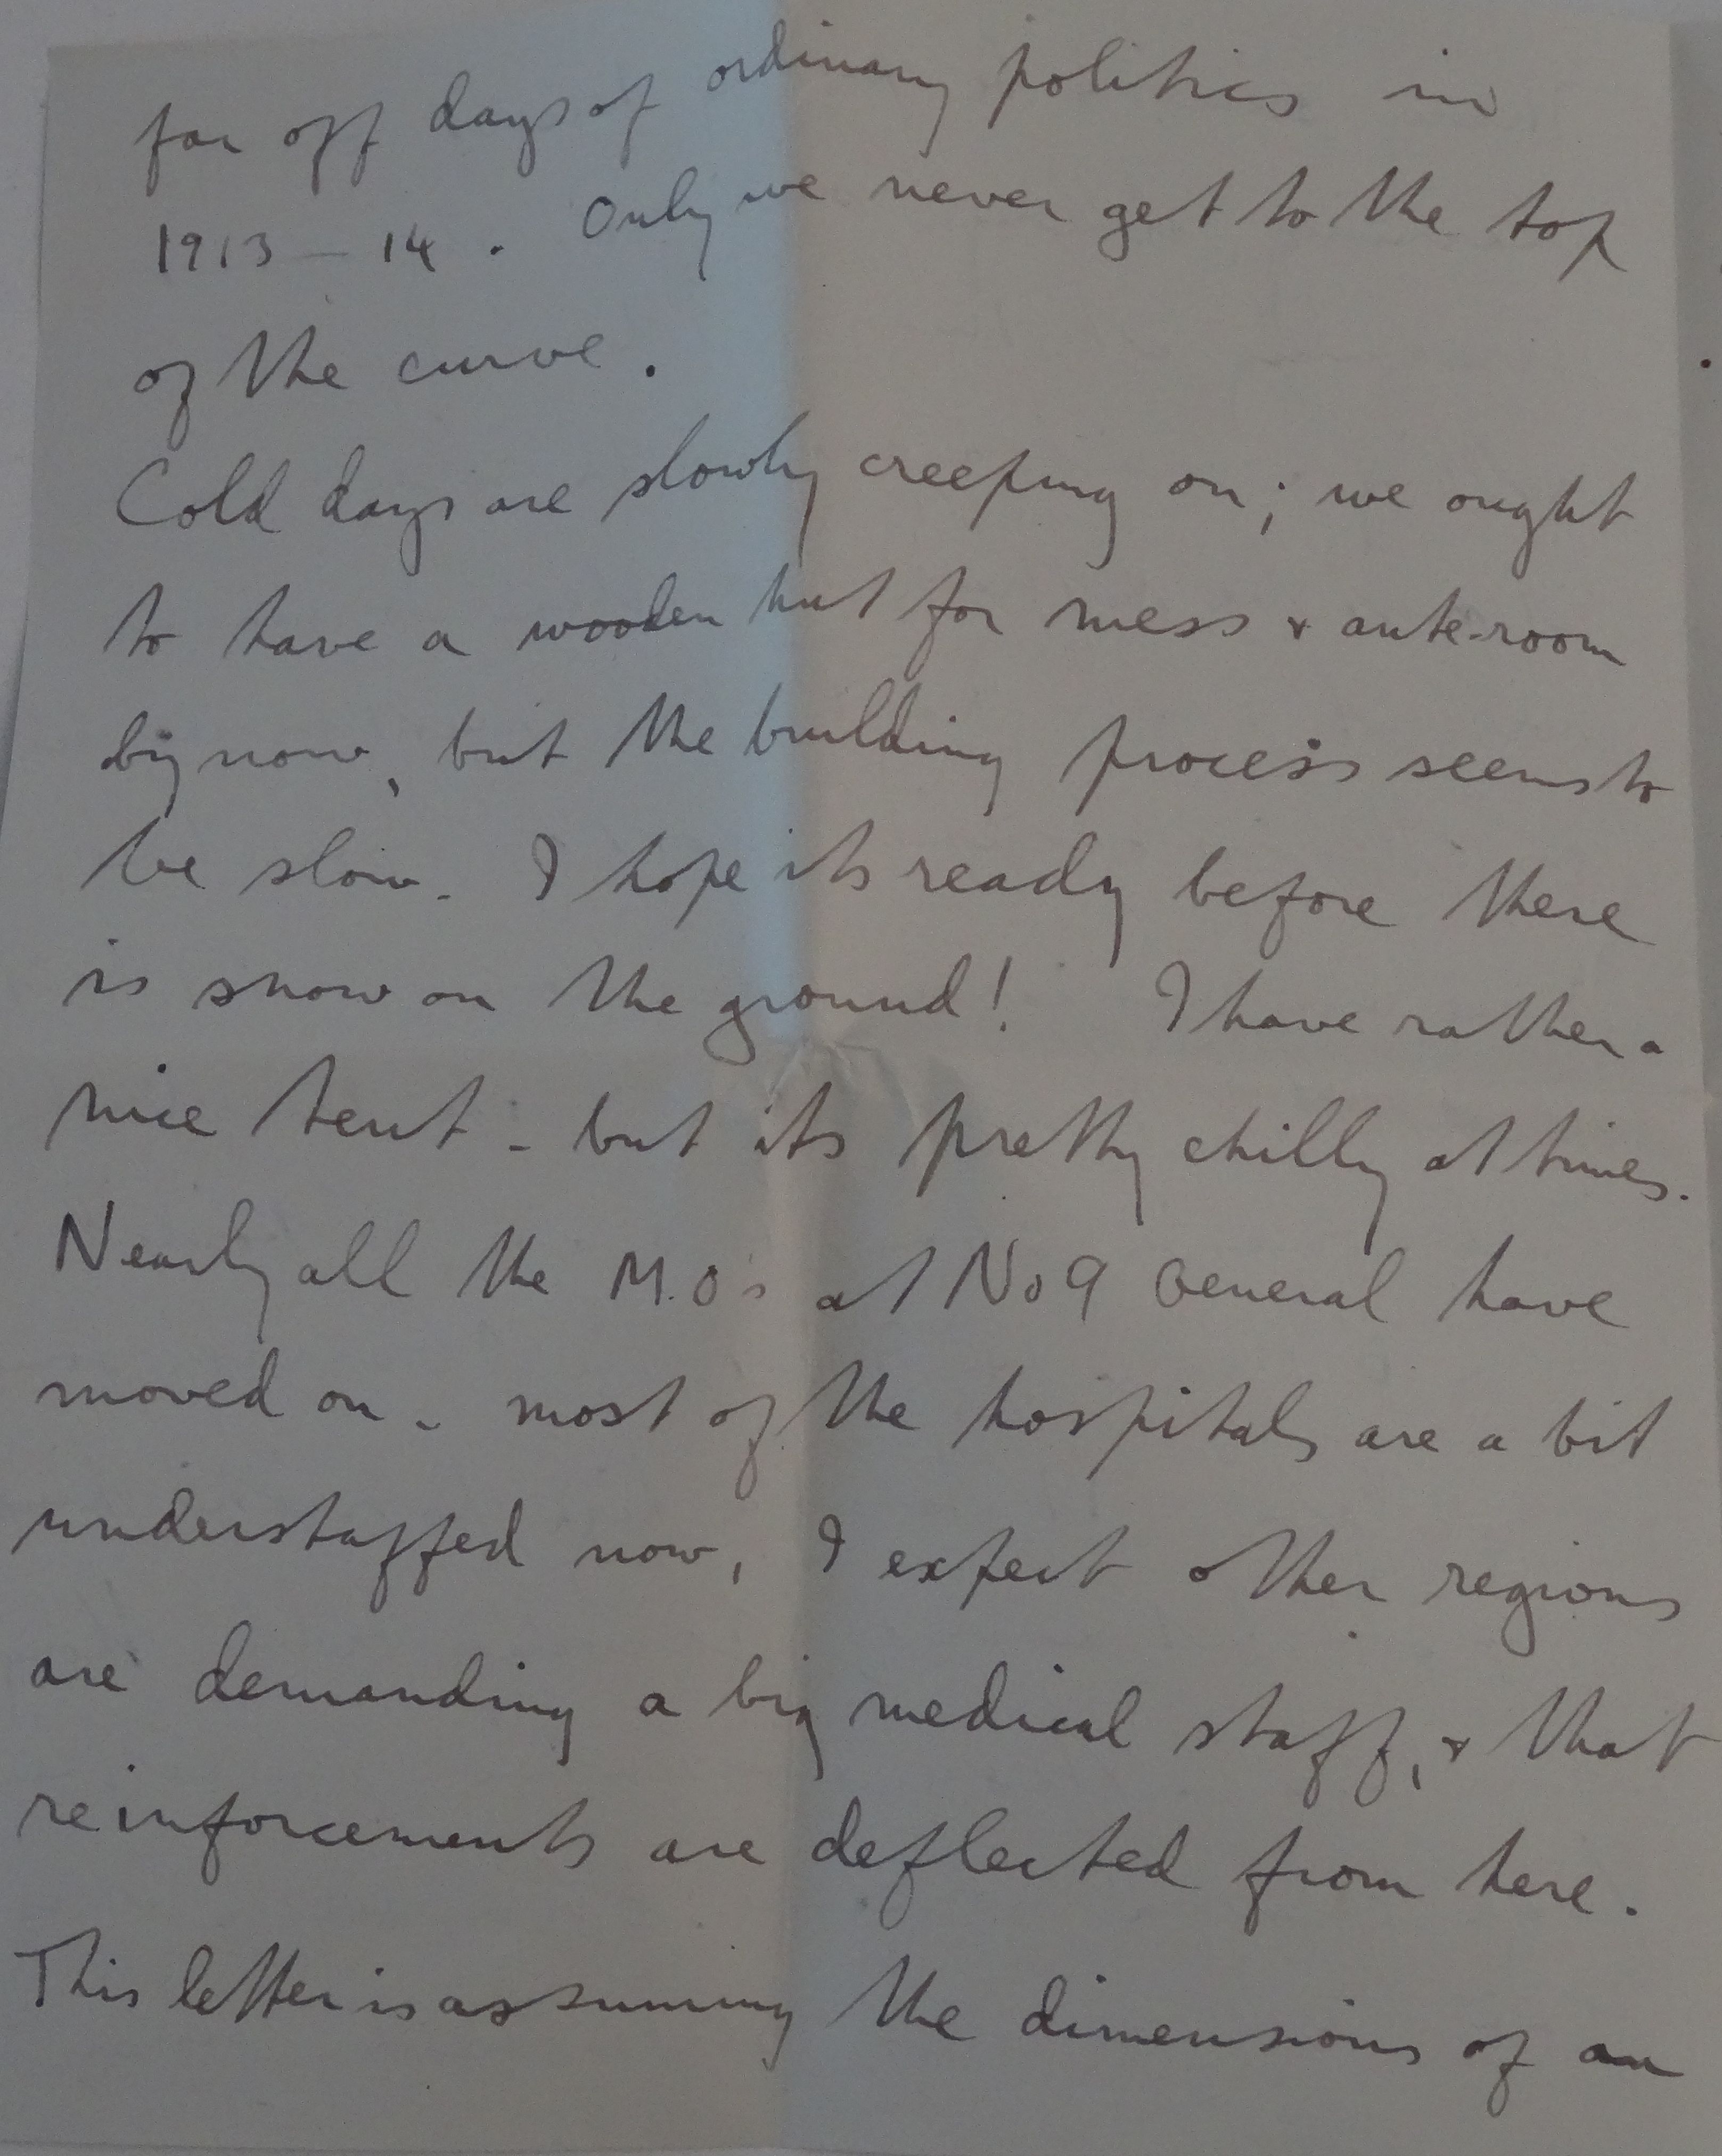 far off days of ordinary politics in
1913-14. Only we never get to the top
of the curve.
Cold days are slowly creeping on; we ought
to have a wooden hut for mess & ante-room
by now, but the building process seems to
be slow. I hope its ready before there
is snow on the ground! I have rather a
nice tent - but its pretty chilly at times.
Nearly all the M.O's at No 9 General have
moved on - most of the hospitals are a bit
understaffed now, I expect other regions
are demanding a big medical staff, & that
reinforcements are deflected from here.
This letter is assuming the dimensions of an